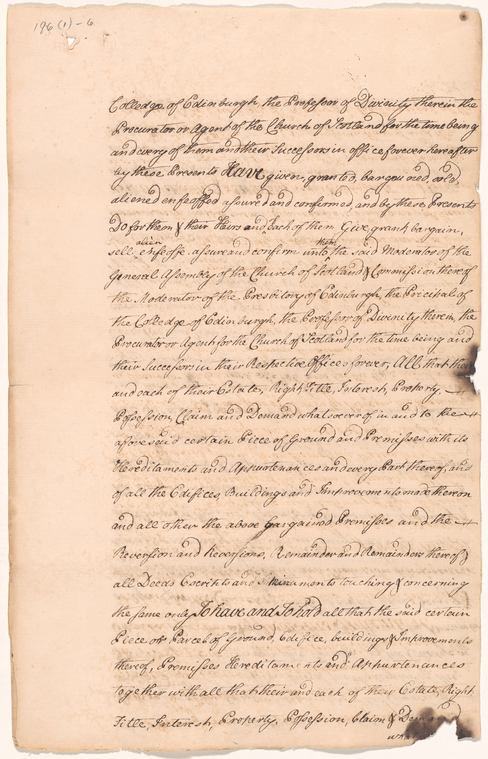 196 (1) - 6
Colledge of Edinburgh, the Professor of Divinity therein the
Procurator or Agent of the Church of Scotland for the time being
and every of them and their Successors in office forever hereafter
by these Presents Have given, granted, bargained, sold,
aliened enfeoffed assured and confirmed, and by these Presents
Do for them & their Heirs and each of them Give, grant, bargain,
sell alien enfeoffe, assure and confirm unto them the said Moderator of the
General Assembly of the Church of Scotland & Commission thereof
the Moderator of the Presbitory of Edinburgh, the Pricipal of
the Colledge of Edinburgh, the Professor of Divinity therein, the
Procurator or Agent for the Church of Scotland for the time being and
their Successors in their Respective Offices forever, All that their
and each of their Estate, Right Title, Interest, Property,
Possession, Claim and Demand whatsoever of in and to the
aforesaid certain Piece of Ground and Premisses with its
Hereditaments and Appurtenances and every Part thereof, and
of all the Edifices, Buildings and Improvements made thereon
and all other the above bargained Premisses and the
Reversion and Reversions, Remainder and Remainders thereof,
all Deeds Escripts and Minuments touching & concerning
the same only To have and To hold all that the said certain
Piece or Parcel of Ground, Edifice, buildings & Improvements
thereof, Premisses Hereditaments and Appurtenances
together with all that their and each of their Estate, Right
Title, Interest, Property, Possession, Claim & Demand